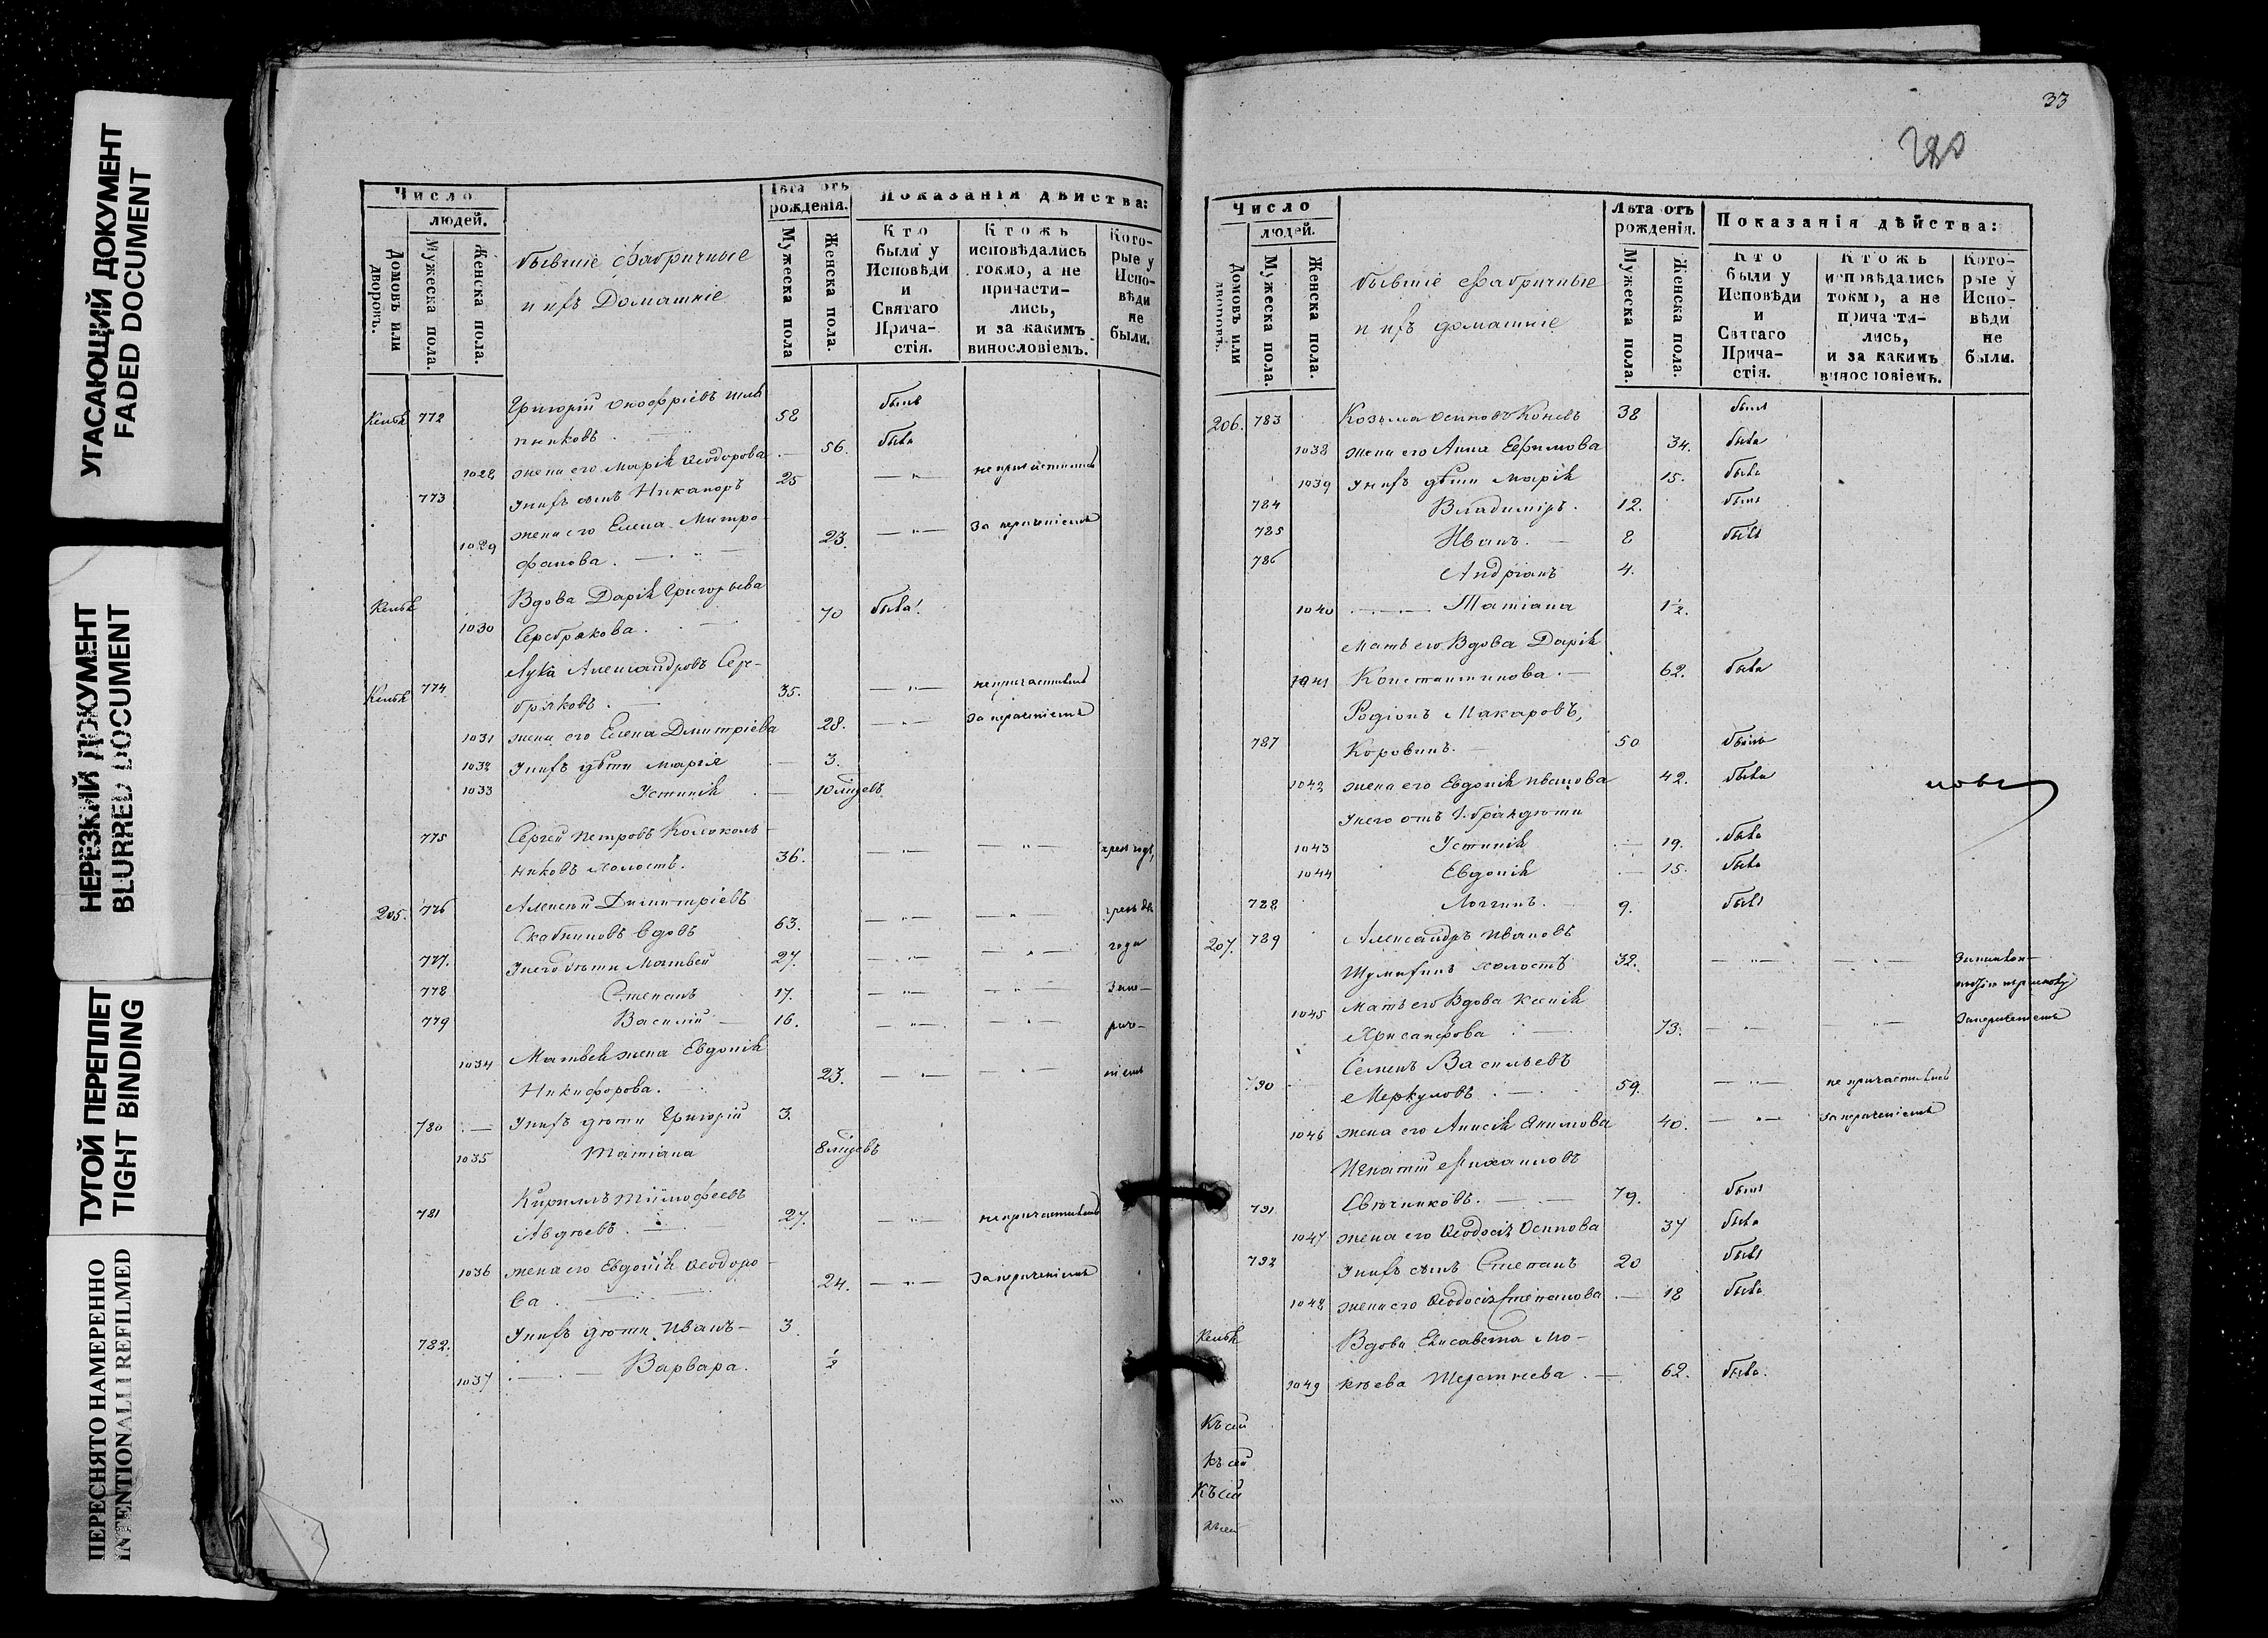 УГАСАЮЩИЙ ДОКУМЕНТ
FADED DOCUMENT
НЕРЕЗКИЙ ДОКУМЕНТ
BLURRED DOCUMENT
ТУГОЙ ПЕРЕПЛЕТ
TIGHT BINDING
ПЕРЕСНЯТО НАМЕРЕННО
INTENTIONALLI REFILMED
Число
людей.
Домовъ или дворовъ.
Мужеска пола.
Женска пола.
бывшіе Фабричные
и ихъ Домашніе
Лѣта отъ рожденія.
Мужеска пола
Женска пола.
Показанія дѣйства:
Кто были у Исповѣди и Святаго Прича-стія.
Ктожъ исповѣдались токмо, а не причасти-лись, и за какимъ винословіемъ.
Кото-рые у Испо-вѣди не были.
772 Григорій Онофріевъ
58 былъ
1028 жена его Марія Ѳеодорова 56. была
773 У нихъ сынъ Никаноръ 25
1029 жена его Елена Митро-
фанова. 23.
Вдова Дарія Григорьева
1030 Серебрякова. 70 была
774 Лука Александровъ Сер-
бряковъ. 35.
1031 жена его Елена Дмитріева 28.
1032 У нихъ дѣти Марія 3.
1033 Устинія 10
775 Сергей Петровъ Колоколь-
никовъ холостъ. 36.
205. 776 Алексѣй Димитріевъ
вдовъ 63.
777. У него дѣти Матвей 27.
778 Степанъ 17.
779 Василій 16.
1034 Матвея жена Евдокія
Никифорова. 23.
780 У нихъ дѣти Григорій 3.
1035 Татіана 8
781 Кириллъ Тимофеевъ
Авдѣевъ. 27.
1036 жена его Евдокія Ѳеодоро-
ва. 24.
782. У нихъ дѣти Иванъ 3.
1037 Варвара. ½
33
Число
людей.
Домовъ или дворовъ.
Мужеска пола.
Женска пола.
бывшіе Фабричные
и ихъ домашніе
Лѣта отъ рожденія.
Мужеска пола.
Женска пола.
Показанія дѣйства:
Кто были у Исповѣди и Святаго Прича-стія.
Ктожъ исповѣдались токмо, а не причасти-лись, и за какимъ винословіемъ.
Кото-рые у Испо-вѣди не были.
206. 783 Козьма Осиповъ Коневъ 38 былъ
1038 жена его Анна Ефимова 34. была
1039 У нихъ дѣти Марія 15. была
784 Владиміръ. 12. былъ
785 Иванъ. 8 былъ
786 Андріанъ 4.
1040 Татіана 1½.
Мать его Вдова Дарія
1041 Константинова. 62. была
Родіонъ Макаровъ,
787 Коровинъ. 50 былъ
1042 жена его Евдокія Иванова 42. была
У него отъ 1. брака дѣти
1043 Устинія 19. была
1044 Евдокія 15. была
788 Логгинъ. 9. былъ
207. 789 Александръ Ивановъ
холостъ 32.
1045 Мать его Вдова Ксенія
Хрисанфова 73.
790 Семенъ Васильевъ
Меркуловъ. 59. не причастились
1046 жена его Анисія Акимова 40.
Игнатій Михаиловъ
791 Свѣчниковъ. 79. былъ
1047 жена его Ѳеодосія Осипова 37 была
792 У нихъ сынъ Степанъ 20 былъ
1048 жена его Ѳеодосія Степанова 18 была
Вдова Елисавета Мо-
1049 кѣева 62. была.